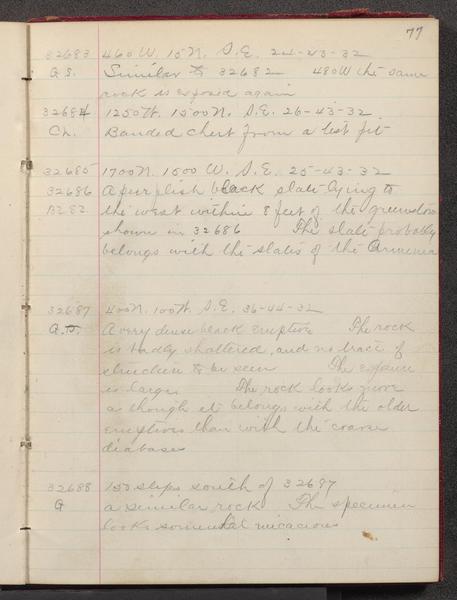 77
32683 460 W. 15 N. S.E. 24-43-32
G.S. Similar to 32682 480 W the same
rock is exposed again
32684 1250 W. 1500 N. S.E. 26-43-32
Ch. Banded chert from a test pit
32685 1700 N. 1500 W. S.E. 25-43-32
32686 A purplish black slate lying to
the west within 8 feet of the greenstone
shown in 32686 The slate probably
belongs with the slates of the Armenia
32687 400 N. 100 W. S.E. 36-44-32
A very dense black eruptive The rock
is badly shattered, and no tract of
structure to be seen The exposure
is large. The rock looks more
as though it belongs with the older
eruptives than with the coarse
diabases
32688 150 steps south of 32687
G a similar rock The specimen
looks somewhat micacious